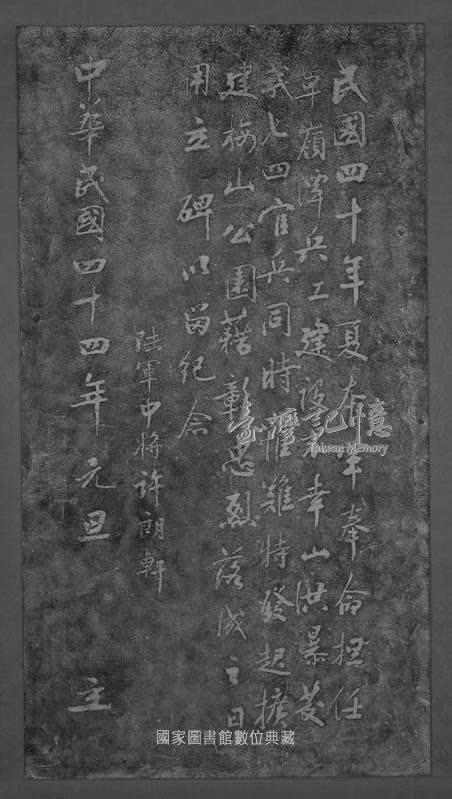 民國四十年夏本軍奉命担任
草嶺潭兵工建設不幸山洪暴發
我七四官兵同時罹難特發起擴
建梅山公園藉彰忠烈落成之日
用立碑以留紀念
陸軍中將許朗軒
中華民國四十四年元旦 立
臺灣記憶
Taiwan Memory
國家圖書館數位典藏